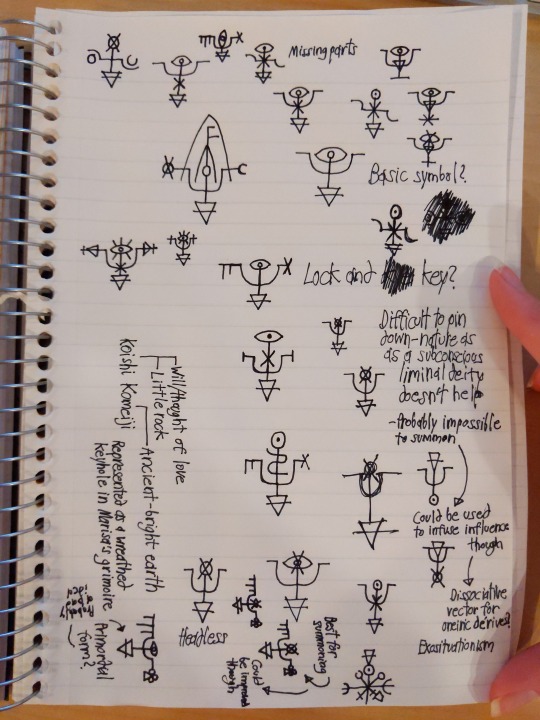 Missing parts
Basic symbol?
Lock and key?
Difficult to pin
down-nature as
as a subconscious
liminal deity
doesn't help
-Probably impossible
to summon
Could be used
to infuse influence
though
Dissociative
vector for
oneiric derived?
Exasituationism
Will/thought of love
Little rock
Koishi Komeiji
Ancient-bright earth
Represented as a wreathed
keyhole in Marisa's grimoire
Primordial
form?
Headless
Best for
summoning
Could
be improved
though